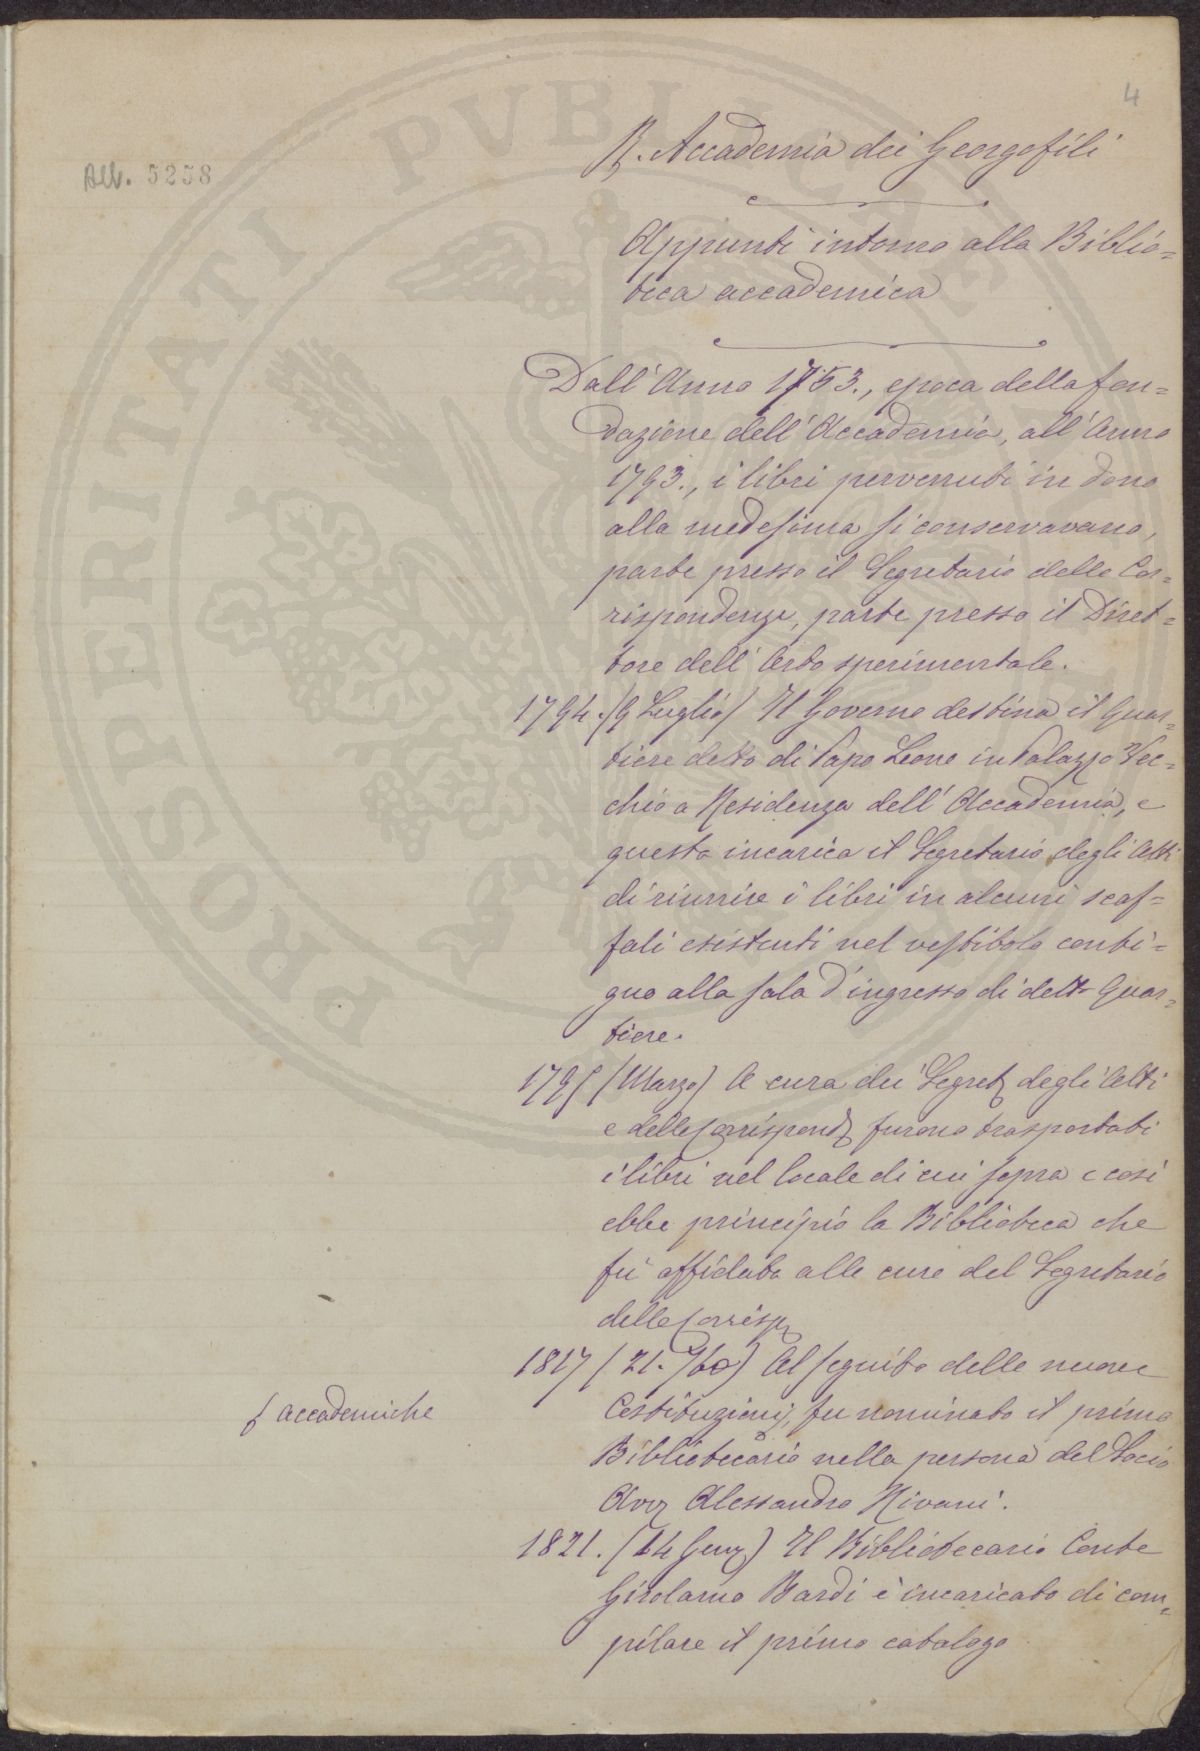 4
R. Accademia dei Georgofili
Acc. 5258
Appunti intorno alla Biblio=
teca accademica
Dall' Anno 1753., epoca della fon=
dazione dell' Accademia, all' Anno
1793., i libri pervenuti in dono
alla medesima si conservavano,
parte presso il Segretario delle Cor=
rispondenze, parte presso il Diret=
tore dell' Orto sperimentale.
1794. (9 Luglio) Il Governo destina il Quar=
tiere detto di Papa Leone in Palazzo Vec=
chio a Residenza dell' Accademia, e
questa incarica il Segretario degli Atti
di riunire i libri in alcuni scaf=
fali esistenti nel vestibolo conti=
guo alla sala d'ingresso di detto Quar=
tiere.
1795 (Marzo) A cura dei Segret. degli Atti
e delle Corrispond. furono trasportati
i libri nel locale di cui sopra e così
ebbe principio la Biblioteca che
fu affidata alle cure del Segretario
delle Corrisp.
1817 (21. 9bre) Al seguito delle nuove
Costituzioni, fu nominato il primo
accademiche
Bibliotecario nella persona del Socio
Avv. Alessandro Rivani.
1821. (14 Genn.) Il Bibliotecario Conte
Girolamo Bardi è incaricato di com=
pilare il primo catalogo
PROSPERITATI PUBLICAE